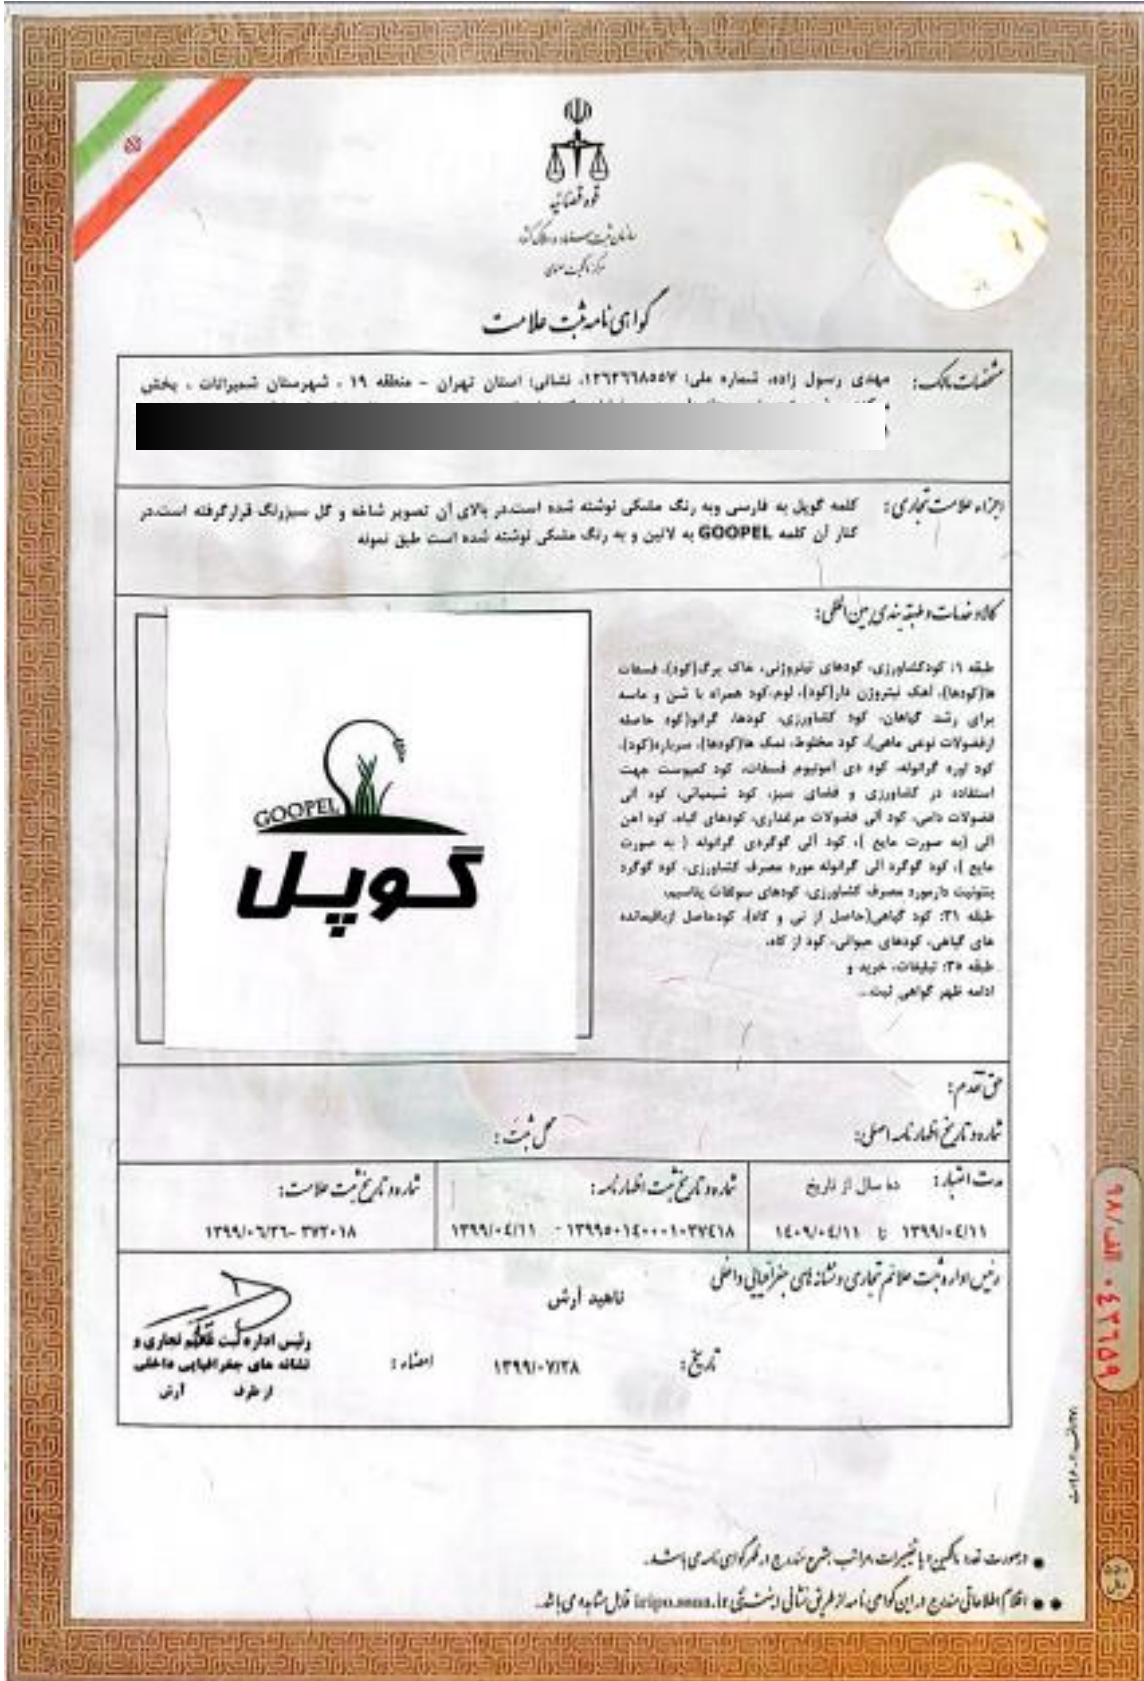 قوه قضائیه
سازمان ثبت اسناد و املاک کشور
مرکز مالکیت معنوی
گواهی نامه ثبت علامت
مشخصات مالک: مهدی رسول زاده، شماره ملی: ۱۲۶۲۶۶۸۵۵۷، نشانی: استان تهران - منطقه ۱۹ ، شهرستان شمیرانات ، بخش
اجزاء علامت تجاری: کلمه گوپل به فارسی وبه رنگ مشکی نوشته شده است.در بالای آن تصویر شاخه و گل سبزرنگ قرارگرفته است.در
کنار آن کلمه GOOPEL به لاتین و به رنگ مشکی نوشته شده است طبق نمونه
کالا و خدمات و طبقه بندی بین المللی:
طبقه ۱: کودکشاورزی، کودهای نیتروژنی، خاک برگ(کود)، فسفات
ها(کودها)، آهک نیتروژن دار(کود)، لوم،کود همراه با شن و ماسه
برای رشد گیاهان، کود کشاورزی، کودها، گرانو(کود حاصله
ازفضولات نوعی ماهی)، کود مخلوط، نمک ها(کودها)، سرباره(کود)،
کود اوره گرانوله، کود دی آمونیوم فسفات، کود کمپوست جهت
استفاده در کشاورزی و فضای سبز، کود شیمیائی، کود آلی
فضولات دامی، کود آلی فضولات مرغداری، کودهای گیاه، کود آهن
آلی (به صورت مایع )، کود آلی گوگردی گرانوله ( به صورت
مایع )، کود گوگرد آلی گرانوله مورد مصرف کشاورزی، کود گوگرد
بنتونیت دارمورد مصرف کشاورزی، کودهای سولفات پتاسیم،
طبقه ۳۱: کود گیاهی(حاصل از نی و کاه)، کودحاصل ازباقیمانده
های گیاهی، کودهای حیوانی، کود از کاه،
طبقه ۳۵: تبلیغات، خرید و
ادامه ظهر گواهی ثبت...
GOOPEL
گوپل
حق تقدم:
شماره و تاریخ اظهارنامه اصلی: محل ثبت:
مدت اعتبار: ده سال از تاریخ
۱۳۹۹/۰۴/۱۱ تا ۱۴۰۹/۰۴/۱۱
شماره و تاریخ ثبت اظهارنامه:
۱۳۹۹۵۰۱۴۰۰۰۱۰۳۷۴۱۸ - ۱۳۹۹/۰۴/۱۱
شماره و تاریخ ثبت علامت:
۳۷۳۰۱۸-۱۳۹۹/۰۶/۲۶
رئیس اداره ثبت علائم تجاری و نشانه های جغرافیایی داخلی
ناهید آرش
تاریخ: ۱۳۹۹/۰۷/۲۸ امضاء:
رئیس اداره ثبت علائم تجاری و
نشانه های جغرافیایی داخلی
از طرف آرش
۰۴۲۶۵۹ الف/۹۸
درصورت تعدد مالکین و یا تغییرات، مراتب بشرح مندرج در ظهر گواهی نامه می باشد.
اقلام اطلاعاتی مندرج در این گواهی نامه از طریق نشانی اینترنتی iripo.ssaa.ir قابل مشاهده می باشد.